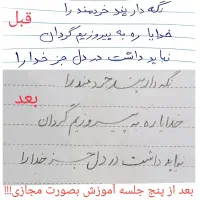 نگه دارید خردمند را
قبل
خدایا ره به پیروزیم گردان
نباید داشت در دل جز خدا را
نگه دارید خردمند را
بعد
خدایا ره به پیروزیم گردان
نباید داشت در دل جز خدا را
بعد از پنج جلسه آموزش بصورت مجازی!!!